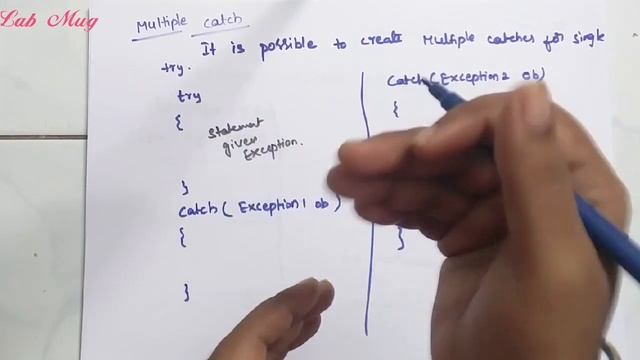 Lab Mug
Multiple catch
It is possible to create Multiple catches for single
try.
try
{
statement
given
Exception.
}
catch( Exception1 ob)
{
}
catch(Exception2 ob)
{
}